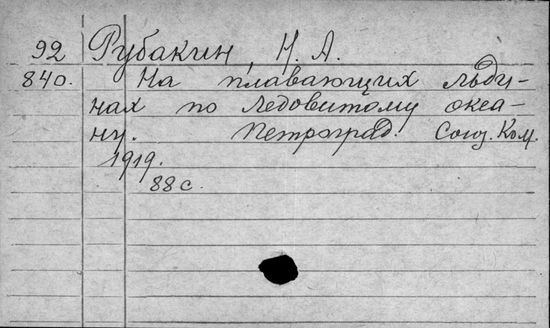 92 Рубакин, Н. А.
840. На плавающих льди-
нах по Ледовитому океа-
ну. Петроград. Союз. Ком.
1919.
88 с.